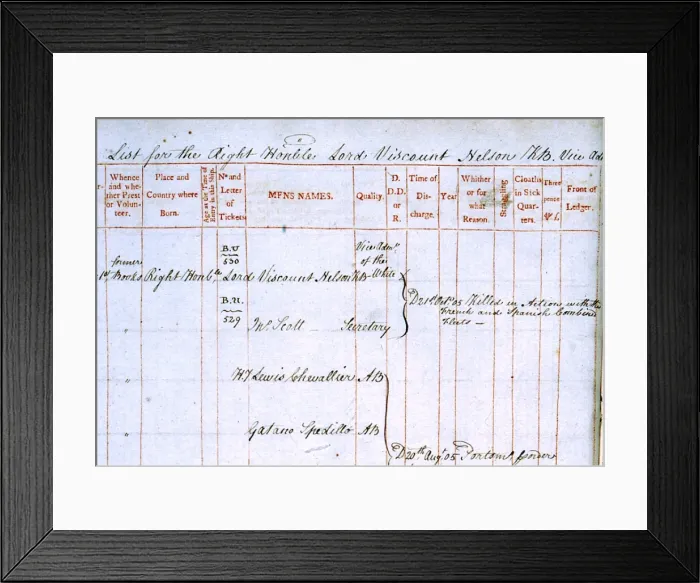 List for the Right Honble Lord Viscount Nelson KB. Vice Ad
Whence and whether Prest or Volunteer.
Place and Country where Born.
Age at the Time of Entry in this Ship.
No and Letter of Tickets
MENS NAMES.
Quality.
D. D.D. or R.
Time of Discharge.
Year
Whither or for what Reason.
Cloaths in Sick Quarters.
Front of Ledger.
B.U 530
Vice Adml of the White
former Books Right Honble Lord Viscount Nelson KB
D 21st Octr 05 Killed in Action with the
French and Spanish Combined
Fleets —
B.U. 529
Jno Scott — Secretary
" Lewis Chevallier AB
" Gatano Spedillo AB
D 20th Augt 05 Portsmo